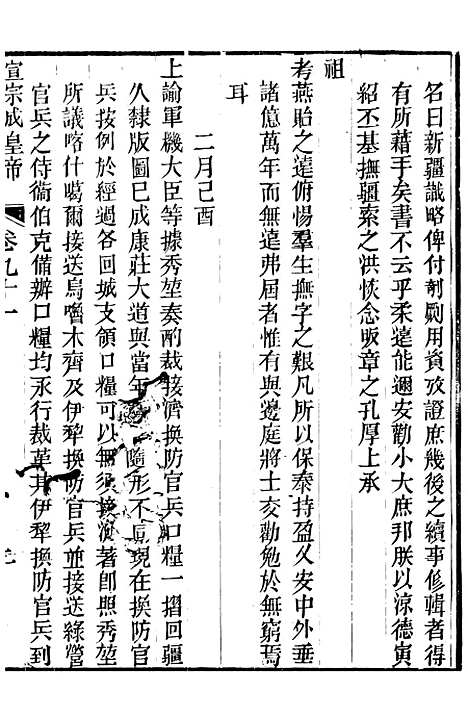 名曰新疆識畧俾付剞劂用資攷證庶幾後之續事修輯者得
有所藉手矣書不云乎柔遠能邇安勸小大庶邦朕以涼德寅
紹丕基撫疆索之洪恢念昄章之孔厚上承
祖
考燕貽之遠俯惕羣生撫字之艱凡所以保泰持盈乂安中外垂
諸億萬年而無遠弗屆者惟有與邊庭將士交勸勉於無窮焉
耳
二月己酉
上諭軍機大臣等據秀堃奏酌裁接濟換防官兵口糧一摺回疆
久隸版圖已成康莊大道與當年 隨形不同現在換防官
兵按例於經過各回城支領口糧可以無須接濟著卽照秀堃
所議喀什噶爾接送烏嚕木齊及伊犂換防官兵並接送綠營
官兵之侍衞伯克備辦口糧均永行裁革其伊犂換防官兵到
宣宗成皇帝 卷九十一